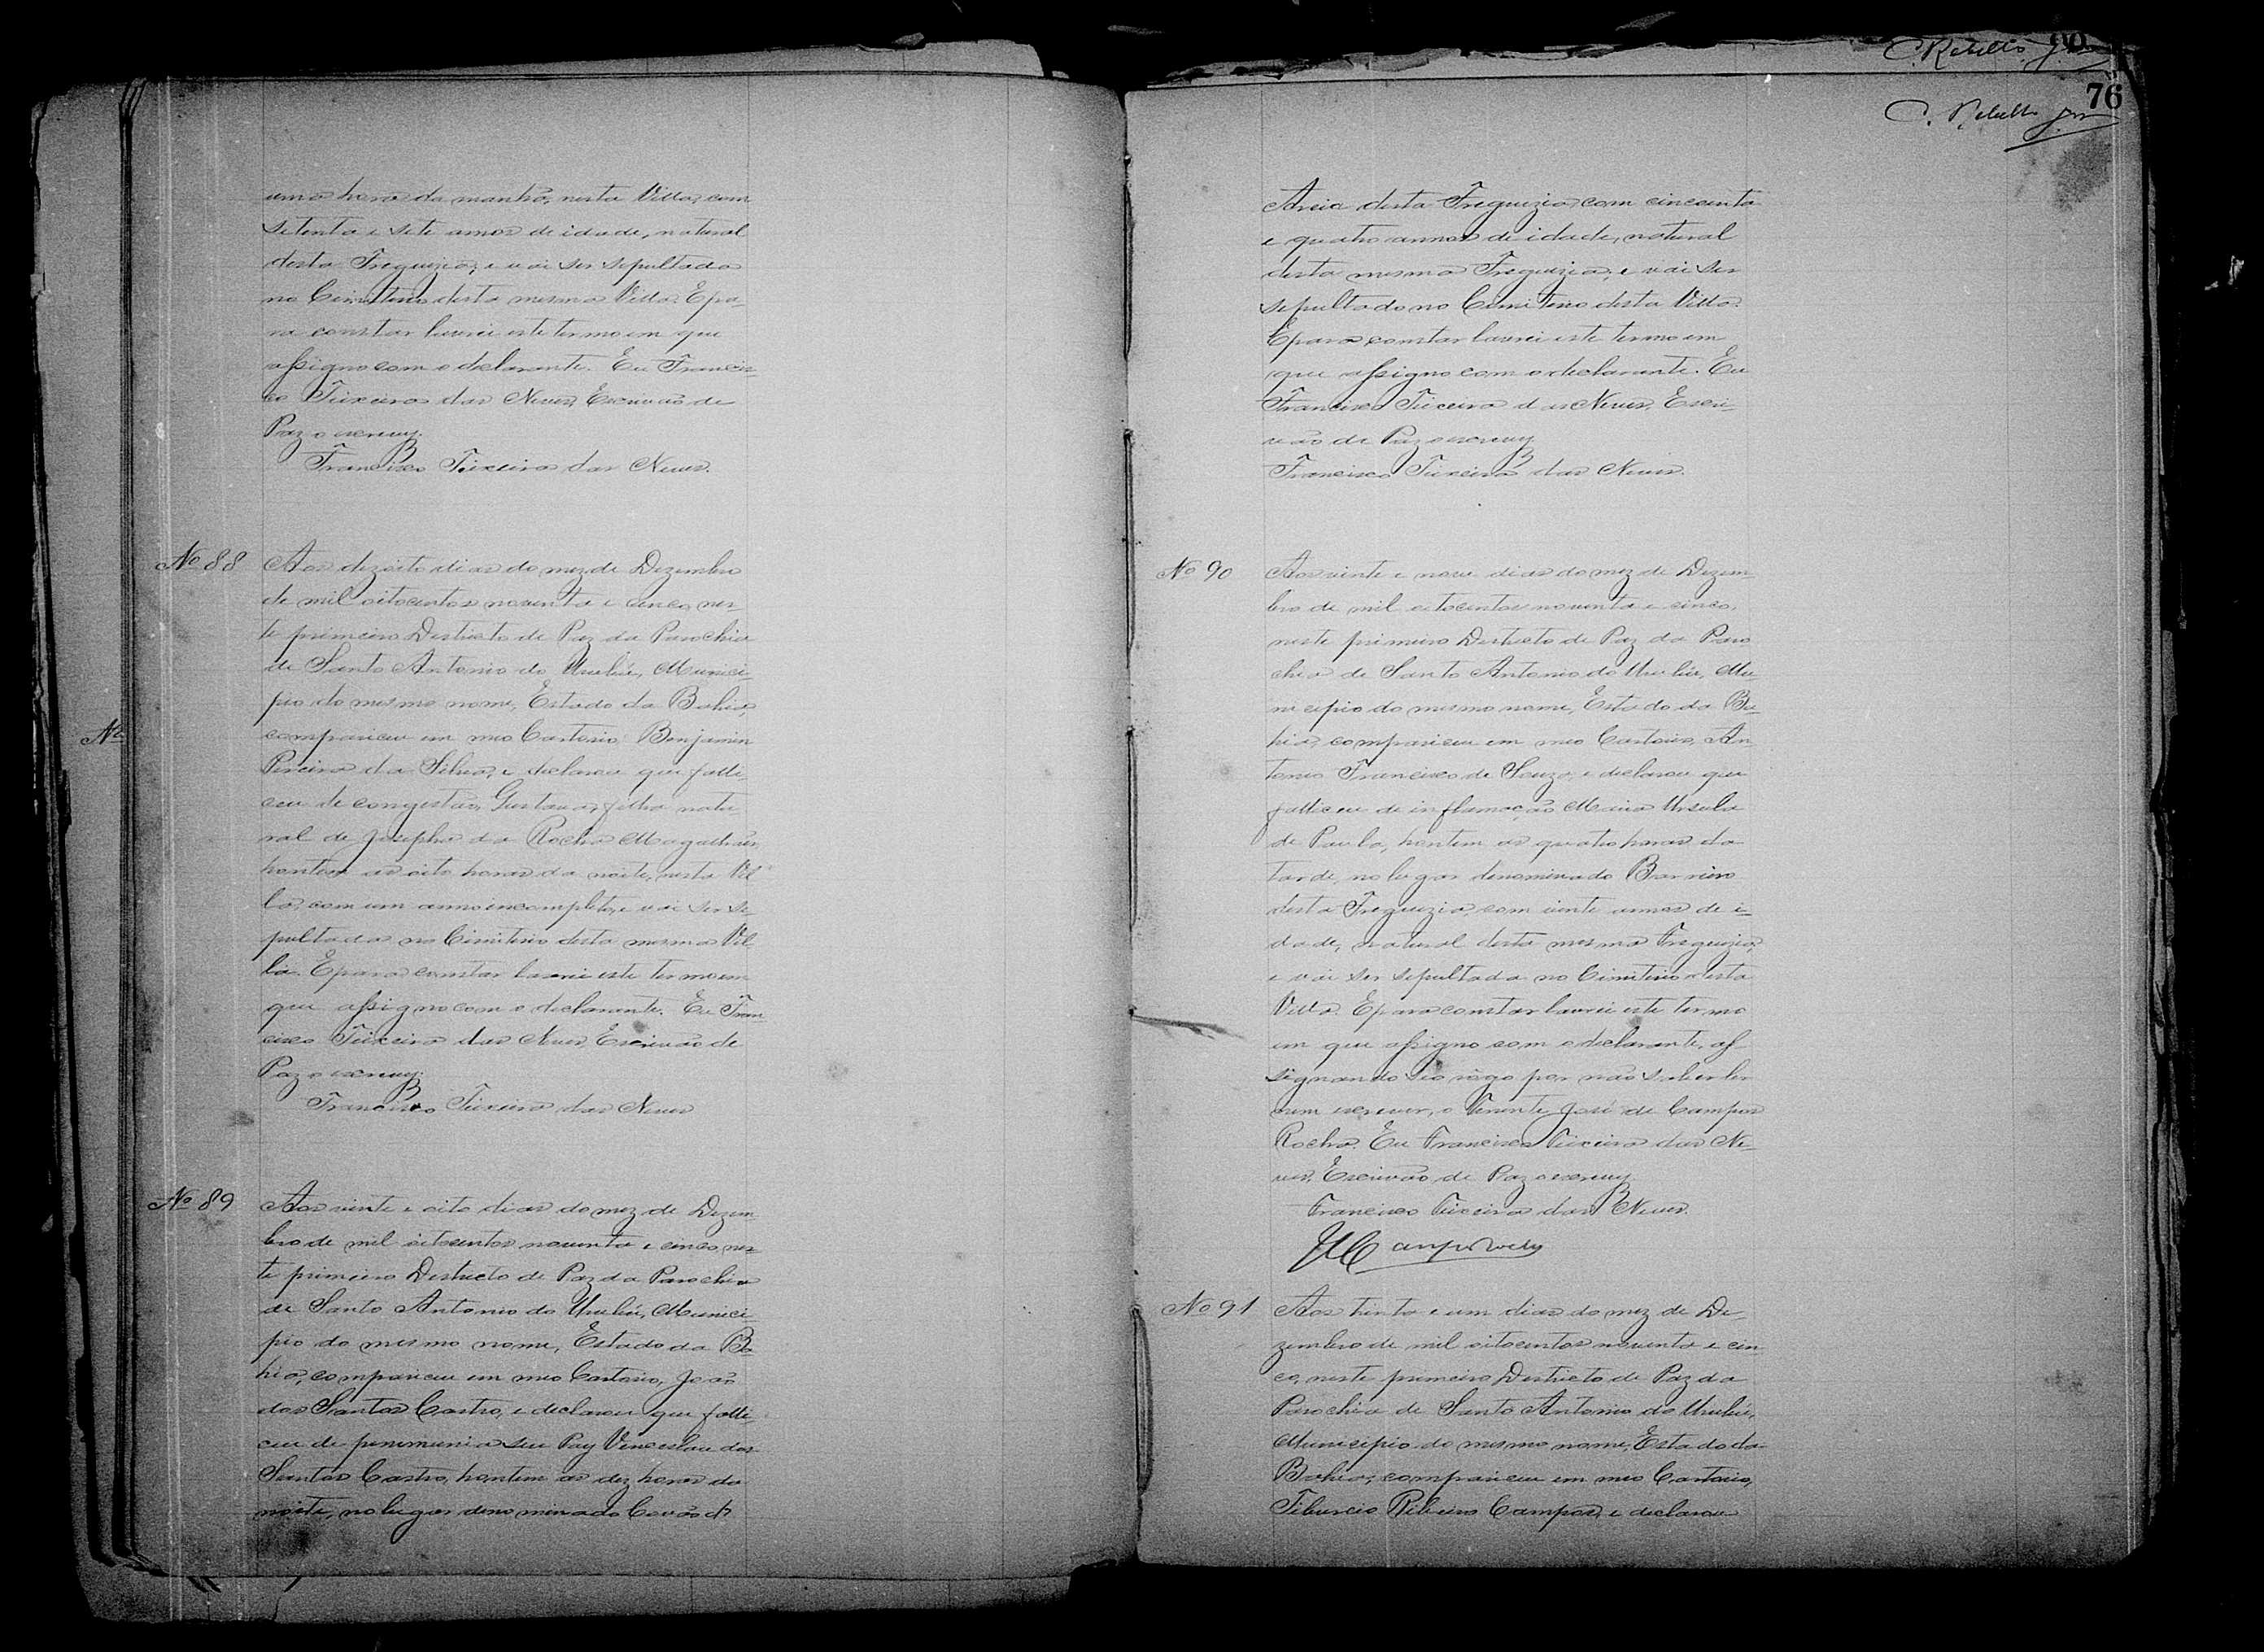 uma hora da manhã, nesta Villa, com
setenta e sete annos de idade, natural
desta Freguizia, e vai ser sepultada
no Cimiterio desta mesma Villa. E pa-
ra constar lavrei este termo em que
assigno com o declarante. Eu Francis-
co Teixeira das Neves, Escrivão de
Paz o escrevy.
Francisco Teixeira das Neves.
No 88
Aos dezoito dias do mez de Dezembro
de mil oitocentos noventa e cinco, nes-
te primeiro Destricto de Paz da Parochia
de Santo Antonio do Urubú, Munici-
pio do mesmo nome, Estado da Bahia,
compareceu em meo Cartorio, Benjamin
Pereira da Silva, e declarou que falle-
ceu de congestão, Gustava, filha natu-
ral de Josepha da Rocha Magalhães,
hontem as oito horas da noite, nesta Vil-
la, com um anno incompleto, e vai ser se-
pultada no Cimiterio desta mesma Vil-
la. E para constar lavrei este termo em
que assigno com o declarante. Eu Fran-
cisco Teixeira das Neves, Escrivão de
Paz o escrevy.
Francisco Teixeira das Neves
No 89
Aos vinte e oito dias do mez de Dezem-
bro de mil oitocentos noventa e cinco, nes-
te primeiro Destricto de Paz da Parochia
de Santo Antonio do Urubú, Munici-
pio do mesmo nome, Estado da Ba-
hia, compareceu em meo Cartorio, João
dos Santos Castro, e declarou que falle-
ceu de penumunia seu Pay Venceslau dos
Santos Castro, hontem as dez horas da
noite, no lugar denominado Covão d'
No
C. Rebello Jor
76
C. Rebello Jor
Areia desta Freguizia, com cincoenta
e quatro annos de idade, natural
desta mesma Freguizia, e vai ser
sepultado no Cimiterio desta Villa.
E para constar lavrei este termo em
que assigno com o declarante. Eu
Francisco Teixeira das Neves, Escri-
vão de Paz o escrevy
Francisco Teixeira das Neves.
No 90
Aos vinte e nove dias do mez de Dezem-
bro de mil oitocentos noventa e cinco,
neste primeiro Destricto de Paz da Paro
chia de Santo Antonio do Urubú, Mu-
nicipio do mesmo nome, Estado da Ba-
hia, compareceu em meo Cartorio, An
tonio Francisco de Souza, e declarou que
falleceu de inflamação Maria Ursula
de Paula, hontem as quatro horas da
tarde, no lugar denominado Barreiro
desta Freguizia, com vinte annos de i-
dade, natural desta mesma Freguizia,
e vai ser sepultada no Cimiterio desta
Villa. E para constar lavrei este termo
em que assigno com o declarante, as
signando seo rogo por não saber ler
nem escrever, o Tenente José de Campos
Rocha. Eu Francisco Teixeira das Ne-
ves, Escrivão de Paz o escrevy
Francisco Teixeira das Neves.
No 91
Aos trinta e um dias do mez de De-
zembro de mil oitocentos noventa e cin
co, neste primeiro Destricto de Paz da
Parochia de Santo Antonio do Urubú,
Municipio do mesmo nome, Estado da
Bahia, compareceu em meo Cartorio,
Tiburcio Ribeiro Campos, e declarou